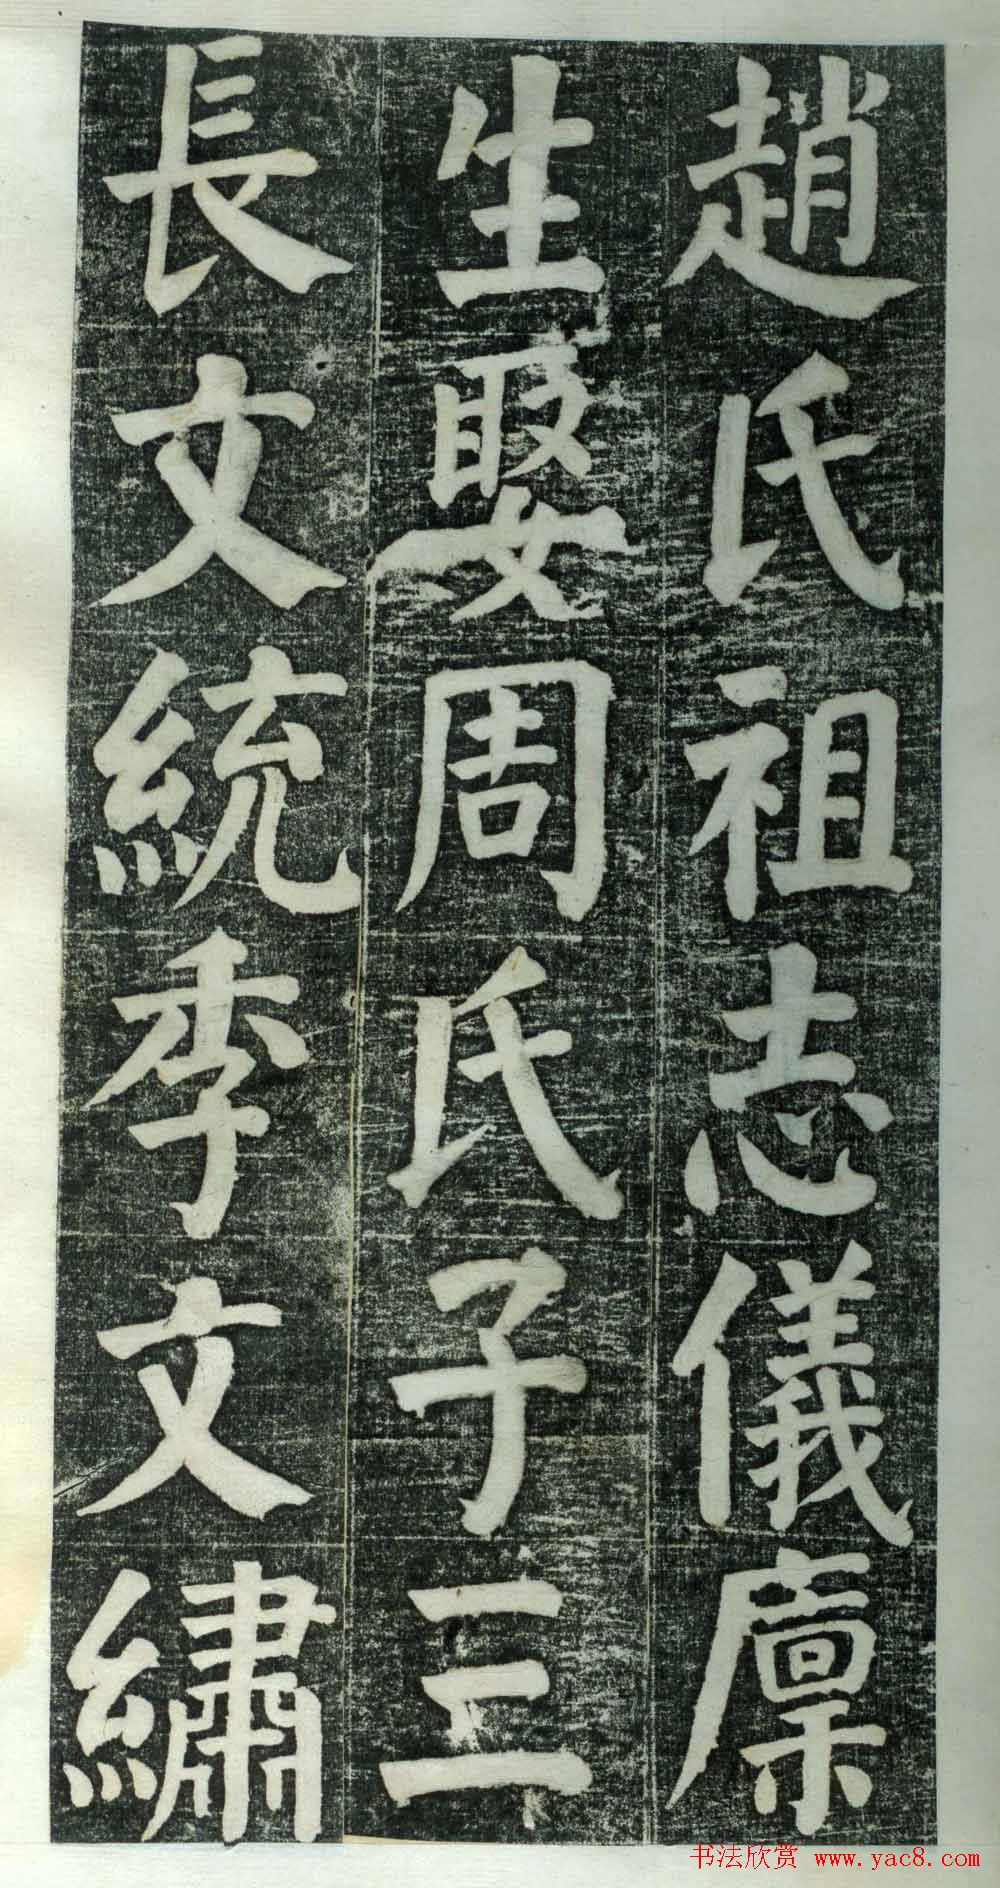 趙氏祖志儀廩
生娶周氏子三
長文統季文繡
书法欣赏 www.yac8.com